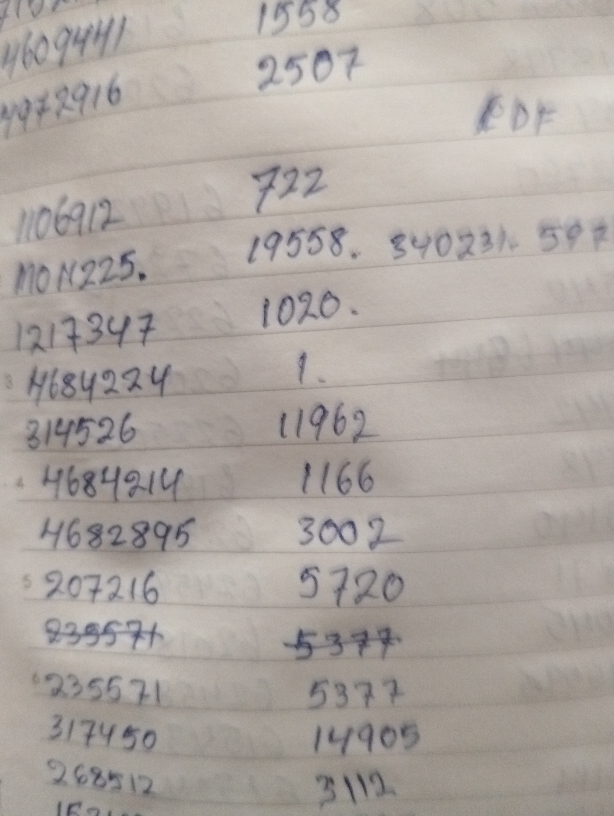 4609441 1558
4972916 2507
PDF
1106912 722
19558. 340231.
1217347 1020.
4684224 1.
314526 11962
4684214 1166
4682895 3002
207216 5720
235571 5377
235571 5377
317450 14905
268512 3112